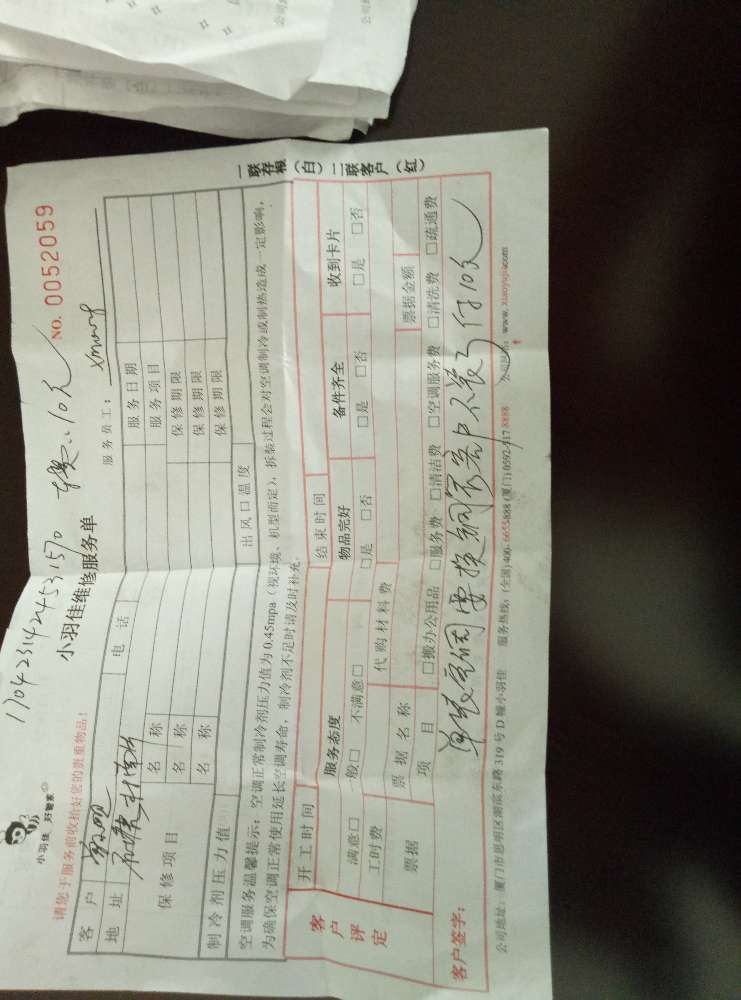 1704231424531570
小羽佳 好管家
小羽佳维修服务单
10元
NO. 0052059
请您于服务前收拾好您的贵重物品!
服务员工:
客户
地址
电话
服务日期
保修项目
名称
服务项目
名称
保修期限
名称
保修期限
保修期限
制冷剂压力值
出风口温度
空调服务温馨提示:空调正常制冷剂压力值为0.45mpa(视环境、机型而定),拆装过程会对空调制冷或制热造成一定影响,
为确保空调正常使用延长空调寿命,制冷剂不足时请及时补充。
开工时间
结束时间
客户评定
服务态度
物品完好
备件齐全
收到卡片
满意□ 一般□ 不满意□
□是 □否
□是 □否
□是 □否
工时费
代购材料费
票据
票据名称
票据金额
项目
□搬办公用品 □服务费 □清洁费 □空调服务费 □清洗费 □疏通费
客户签字:
要换铜 客户不装了付10元
公司地址:厦门市思明区湖滨东路319号D幢小羽佳
服务热线:(全国)400-6655888 (厦门)0592-5178888
www.xiaoyujia.com
一联存根(白)二联客户(红)